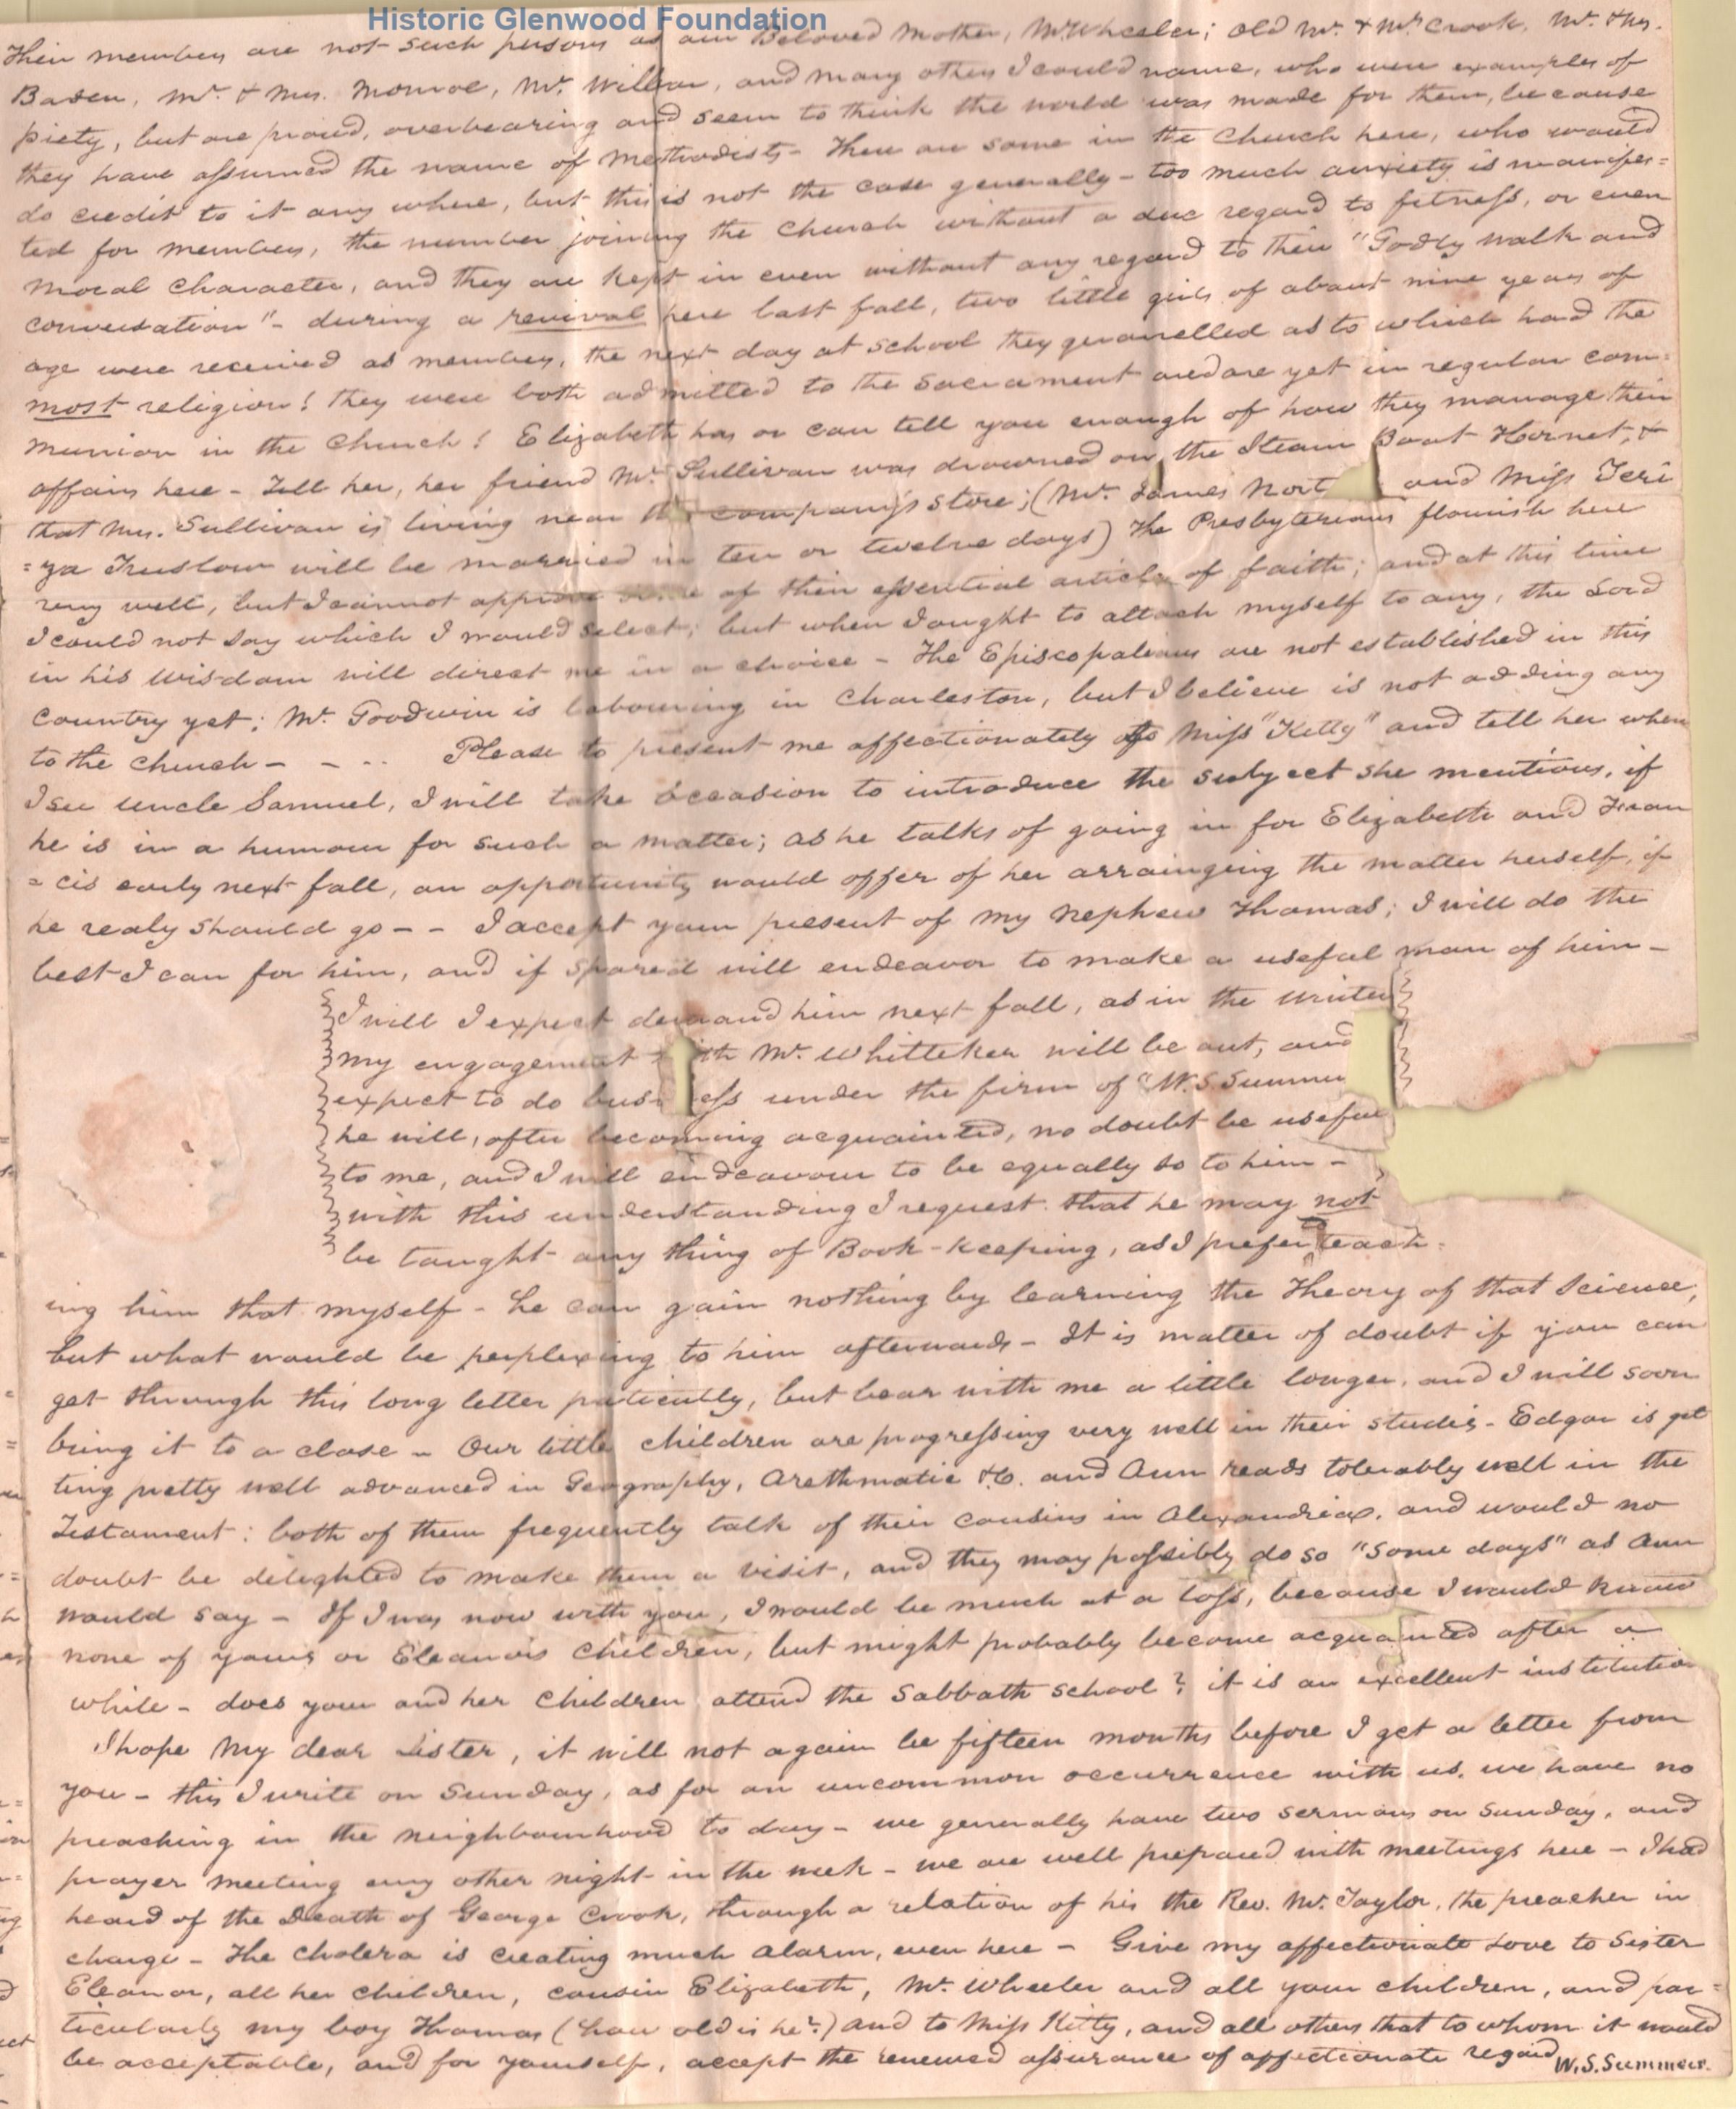 Historic Glenwood Foundation
Their members are not such persons as our Beloved Mother, Mr. Wheeler; old Mr. & Mrs. Crook, Mr. & Mrs.
Baden, Mr. & Mrs. Monroe, Mr. Willson, and many others I could name, who were examples of
piety, but are proud, overbearing and seem to think the world was made for them, because
they have assumed the name of Methodists - There are some in the Church here, who would
do credit to it any where, but this is not the case generally - too much anxiety is manifes=
ted for members, the number joining the Church without a due regard to fitness, or even
moral Character, and they are kept in even without any regard to their "Godly walk and
conversation" - during a revival here last fall, two little girls of about nine years of
age were received as members, the next day at school they quarrelled as to which had the
most religion! they were both admitted to the Sacrament and are yet in regular com=
munion in the Church! Elizabeth has or can tell you enough of how they manage their
affairs here - Tell her, her friend Mr. Sullivan was drowned on the Steam Boat Hornet, &
that Mrs. Sullivan is living near the company's store; (Mr. James Nort and Miss Teri
=ya Truslow will be married in ten or twelve days) The Presbyterians flourish here
very well, but I cannot approve some of their essential articles of faith; and at this time
I could not say which I would select; but when I ought to attach myself to any, the Lord
in his wisdom will direct me in a choice - The Episcopalians are not established in this
country yet; Mr. Goodwin is labouring in Charleston, but I believe is not adding any
to the church - - - .. Please to present me affectionately to Miss "Kitty" and tell her when
I see uncle Samuel, I will take occasion to introduce the subject she mentions, if
he is in a humour for such a matter; as he talks of going in for Elizabeth and Fran
=cis early next fall, an opportunity would offer of her arrainging the matter herself, if
he realy should go - - I accept your present of my Nephew Thomas; I will do the
best I can for him, and if spared will endeavor to make a useful man of him -
I will I expect demand him next fall, as in the winter
my engagement with Mr. Whitteker will be out, and
expect to do business under the firm of "W. S. Summe
he will, after becoming acquainted, no doubt be useful
to me, and I will endeavour to be equally so to him -
with this understanding I request that he may not
be taught any thing of Book-keeping, as I prefer teach-
ing him that myself - he can gain nothing by learning the Theory of that Science,
but what would be perplexing to him afterwards - It is matter of doubt if you can
get through this long letter patiently, but bear with me a little longer, and I will soon
bring it to a close - Our little children are progressing very well in their studies - Edgar is get
ting pretty well advanced in Geography, Arethmatic &c. and Ann reads tolerably well in the
Testament: both of them frequently talk of their cousins in Alexandria, and would no
doubt be delighted to make them a visit, and they may possibly do so "some days" as Ann
would say - If I was now with you, I would be much at a loss, because I would know
none of yours or Eleanors Children, but might probably become acquainted after a
while - does your and her children attend the Sabbath school? it is an excellent institution
I hope my dear Sister, it will not again be fifteen months before I get a letter from
you - this I write on Sunday, as for an uncommon occurrence with us, we have no
preaching in the neighbourhood to day - we generally have two sermons on Sunday, and
prayer meeting every other night in the week - we are well prepared with meetings here - I had
heard of the Death of George Crook, through a relation of his the Rev. Mr. Taylor, the preacher in
charge - The cholera is creating much alarm, even here - Give my affectionate Love to Sister
Eleanor, all her children, cousin Elizabeth, Mr. Wheeler and all your children, and par=
ticularly my boy Thomas (how old is he?) and to Miss Kitty, and all others that to whom it would
be acceptable, and for yourself, accept the renewed assurance of affectionate regard W. S. Summers.